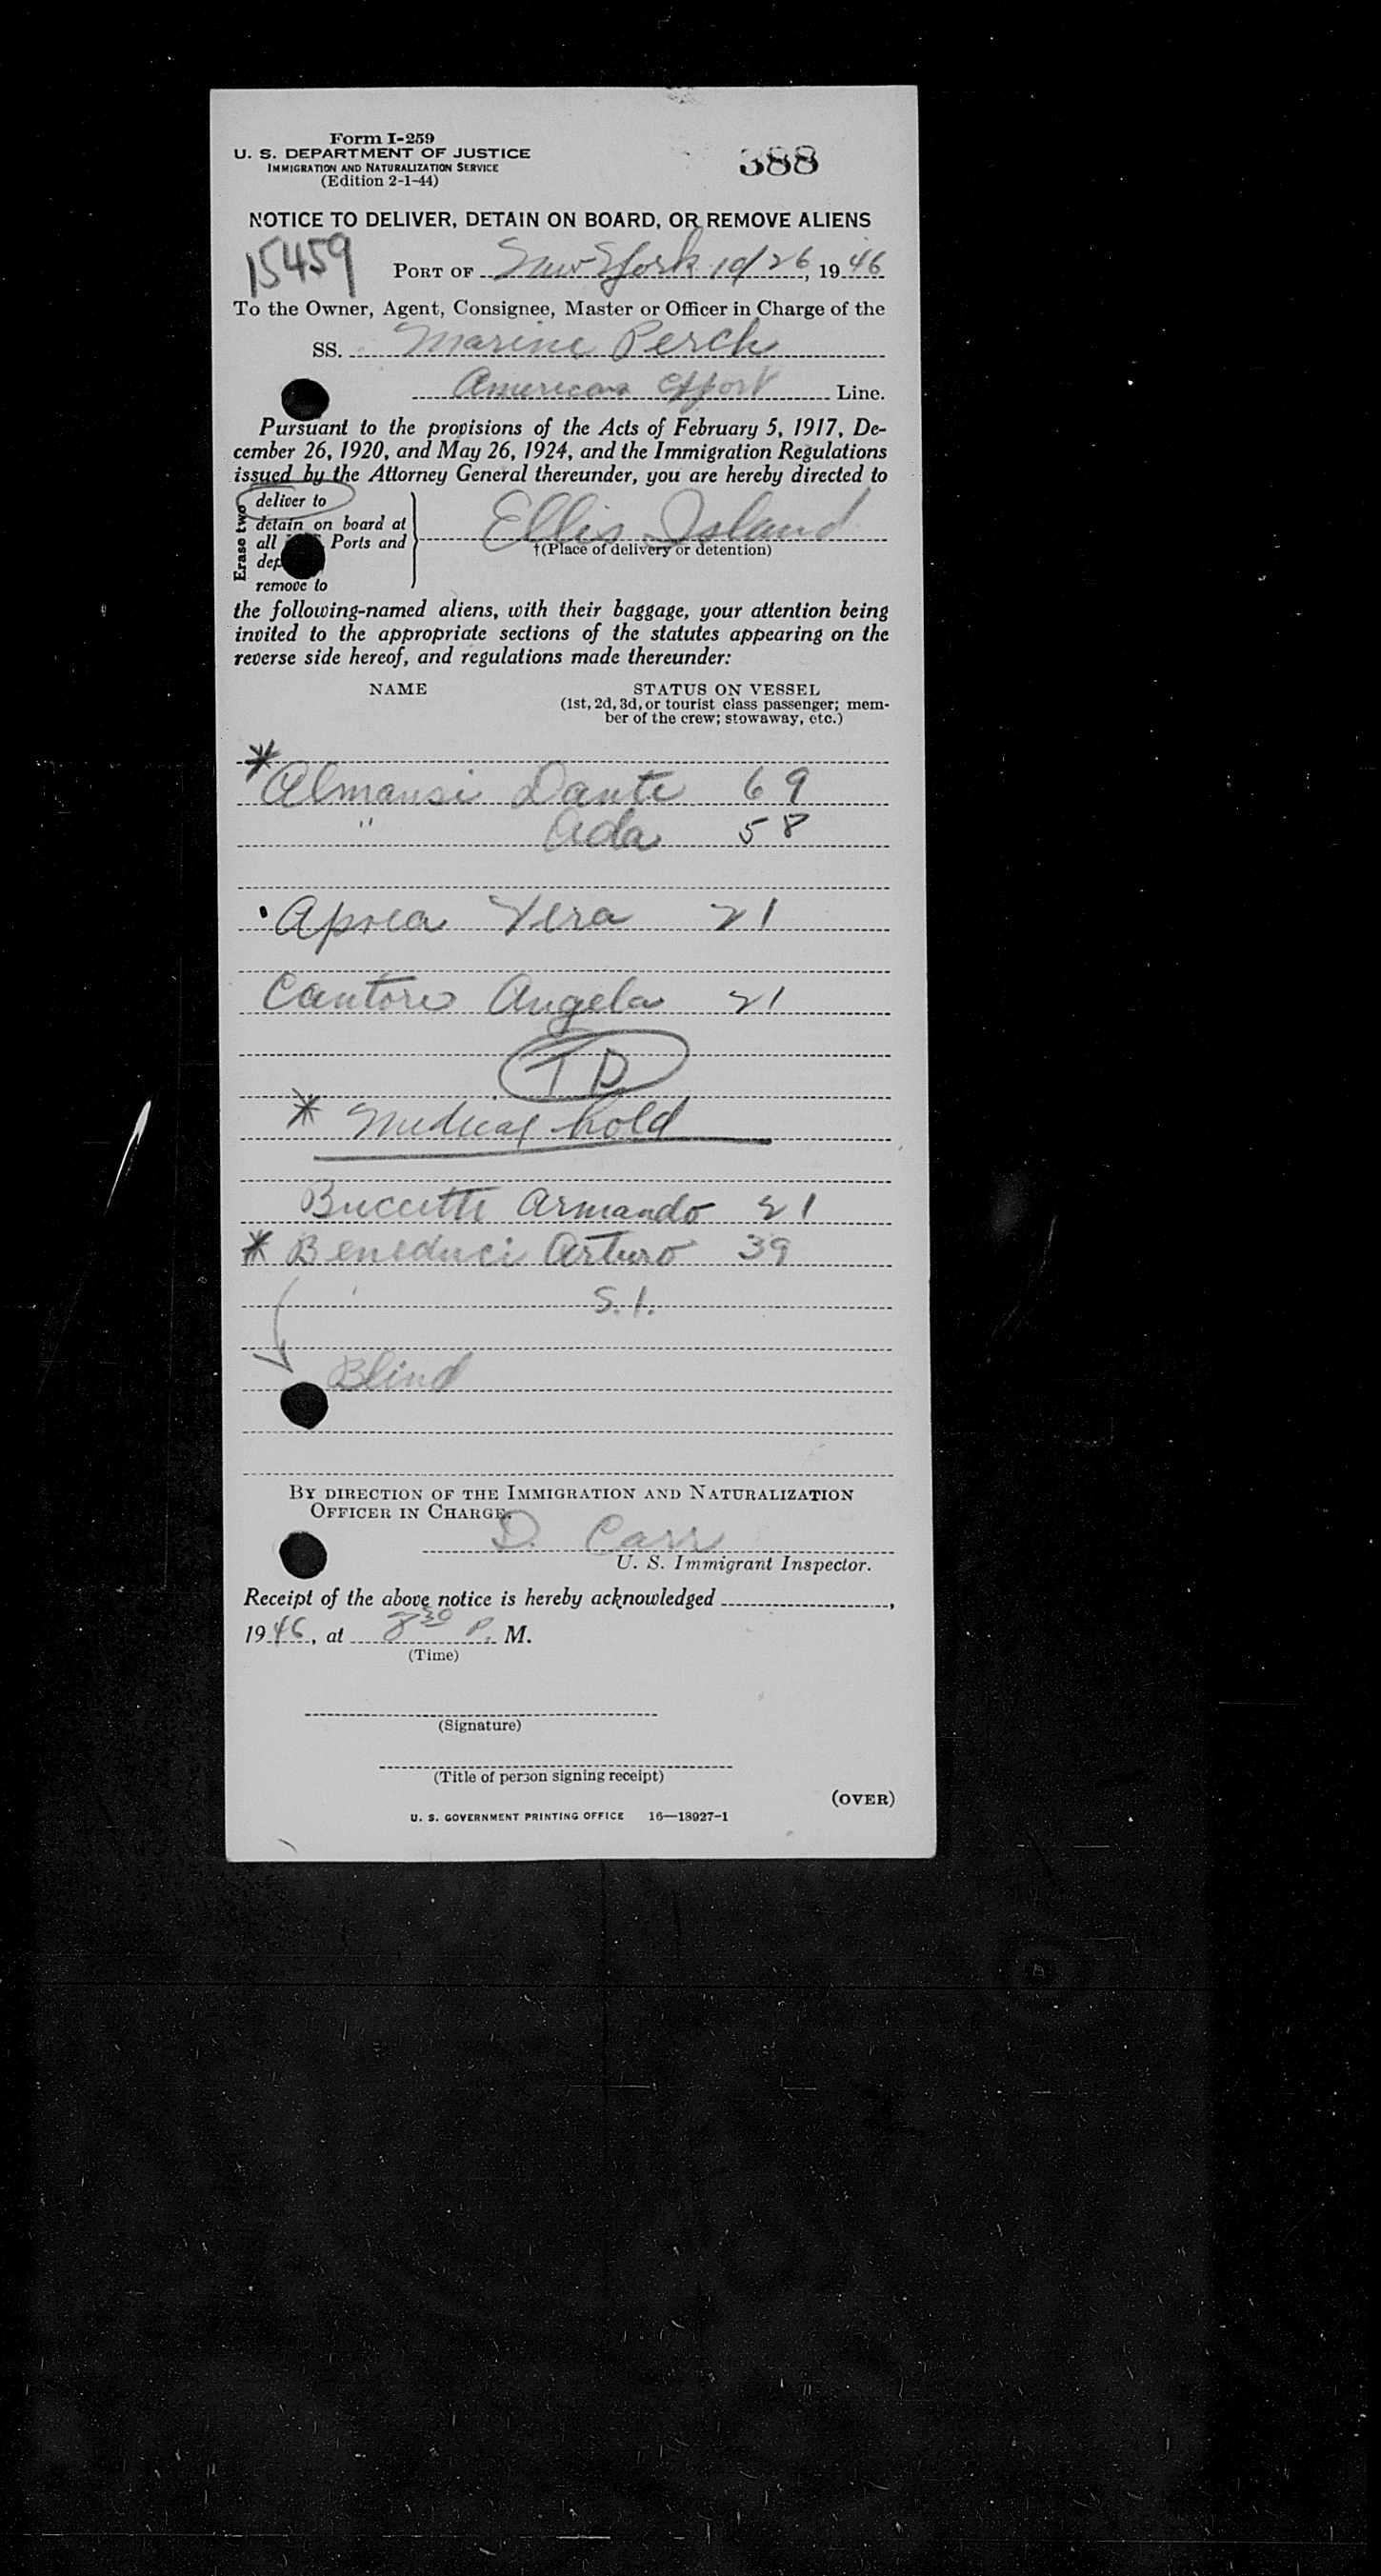 Form I-259
U. S. DEPARTMENT OF JUSTICE
IMMIGRATION AND NATURALIZATION SERVICE
(Edition 2-1-44)
388
NOTICE TO DELIVER, DETAIN ON BOARD, OR REMOVE ALIENS
15459
PORT OF New York 10/26, 1946
To the Owner, Agent, Consignee, Master or Officer in Charge of the
SS. Marine Perch
American Export Line.
Pursuant to the provisions of the Acts of February 5, 1917, De-
cember 26, 1920, and May 26, 1924, and the Immigration Regulations
issued by the Attorney General thereunder, you are hereby directed to
Erase two
deliver to
detain on board at
all Ports and
remove to
Ellis Island
†(Place of delivery or detention)
the following-named aliens, with their baggage, your attention being
invited to the appropriate sections of the statutes appearing on the
reverse side hereof, and regulations made thereunder:
NAME STATUS ON VESSEL
(1st, 2d, 3d, or tourist class passenger; mem-
ber of the crew; stowaway, etc.)
* Almansi Dante 69
" Ada 58
Aprea Vera 21
Cantore Angela 21
TD
* Medical hold
Buccetti Armando 21
* Beneduci Arturo 39
S.I.
Blind
BY DIRECTION OF THE IMMIGRATION AND NATURALIZATION
OFFICER IN CHARGE.
D. Carr
U. S. Immigrant Inspector.
Receipt of the above notice is hereby acknowledged ,
1946, at 8 30 P. M.
(Time)
(Signature)
(Title of person signing receipt)
(OVER)
U. S. GOVERNMENT PRINTING OFFICE 16—18927-1